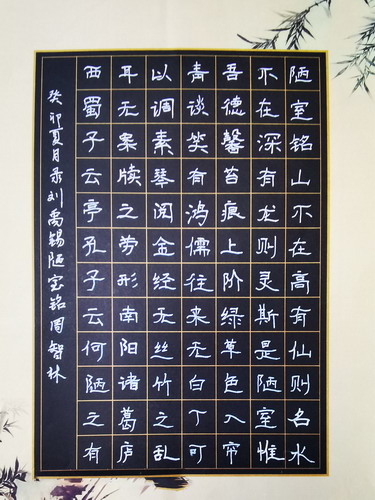 陋室铭山不在高有仙则名水
不在深有龙则灵斯是陋室惟
吾德馨苔痕上阶绿草色入帘
青谈笑有鸿儒往来无白丁可
以调素琴阅金经无丝竹之乱
耳无案牍之劳形南阳诸葛庐
西蜀子云亭孔子云何陋之有
癸卯夏月录刘禹锡陋室铭周智林